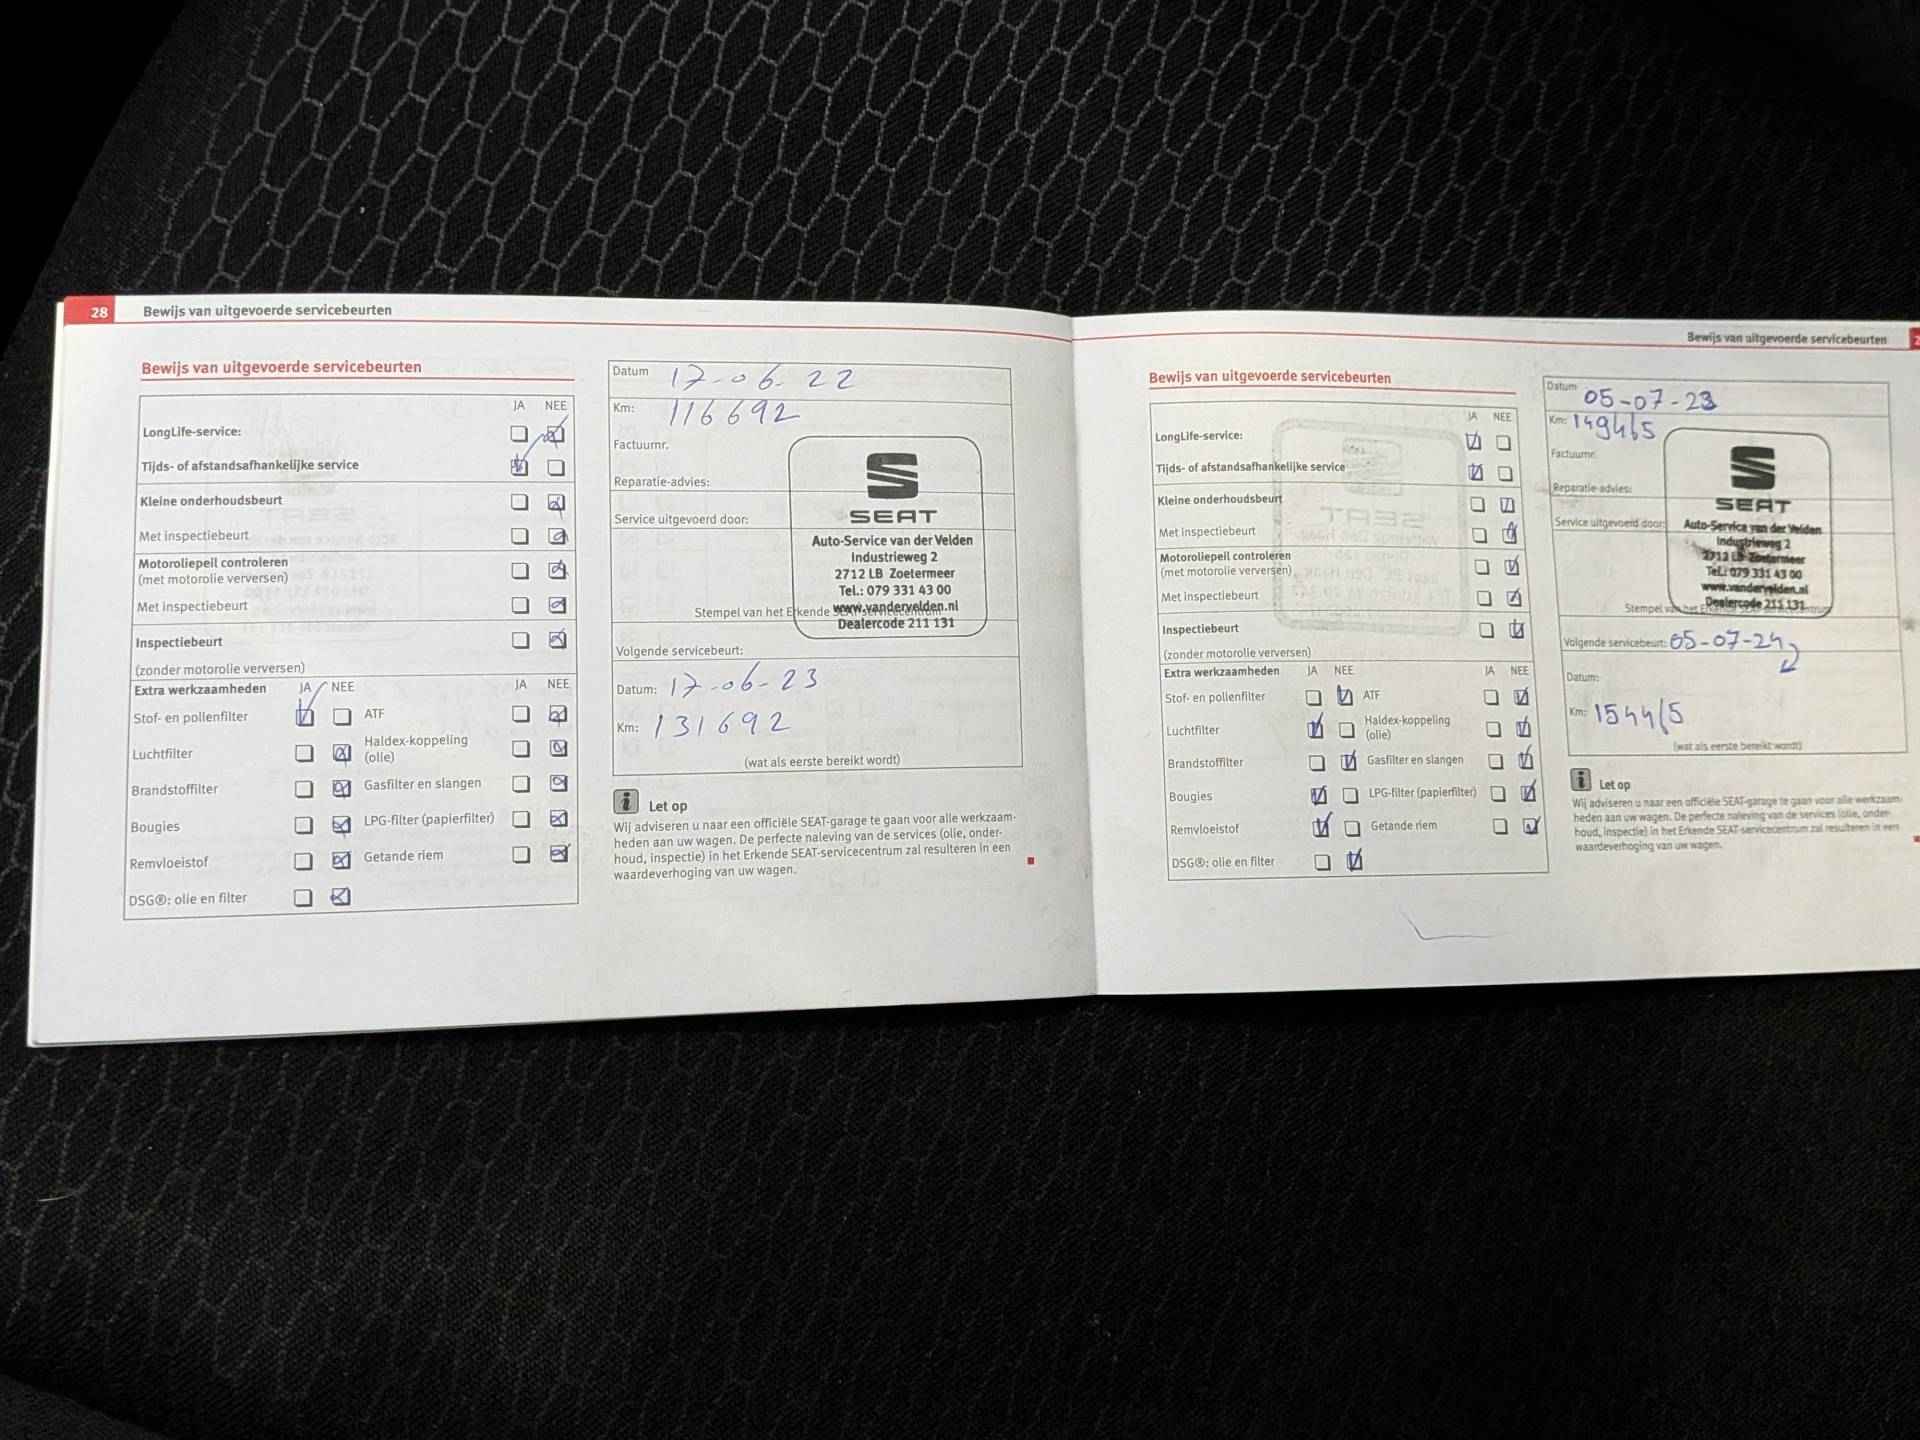 28 Bewijs van uitgevoerde servicebeurten
Bewijs van uitgevoerde servicebeurten
JA NEE
LongLife-service:
Tijds- of afstandsafhankelijke service
Kleine onderhoudsbeurt
Met inspectiebeurt
Motoroliepeil controleren
(met motorolie verversen)
Met inspectiebeurt
Inspectiebeurt
(zonder motorolie verversen)
Extra werkzaamheden JA NEE JA NEE
Stof- en pollenfilter ATF
Luchtfilter Haldex-koppeling
(olie)
Brandstoffilter Gasfilter en slangen
Bougies LPG-filter (papierfilter)
Remvloeistof Getande riem
DSG®: olie en filter
Datum 17-06-22
Km: 116692
Factuurnr.
Reparatie-advies:
Service uitgevoerd door:
SEAT
Auto-Service van der Velden
Industrieweg 2
2712 LB Zoetermeer
Tel.: 079 331 43 00
www.vandervelden.nl
Dealercode 211 131
Stempel van het Erkende SEAT-servicecentrum
Volgende servicebeurt:
Datum: 17-06-23
Km: 131692
(wat als eerste bereikt wordt)
i Let op
Wij adviseren u naar een officiële SEAT-garage te gaan voor alle werkzaam-
heden aan uw wagen. De perfecte naleving van de services (olie, onder-
houd, inspectie) in het Erkende SEAT-servicecentrum zal resulteren in een
waardeverhoging van uw wagen.
Bewijs van uitgevoerde servicebeurten
Bewijs van uitgevoerde servicebeurten
JA NEE
LongLife-service:
Tijds- of afstandsafhankelijke service
Kleine onderhoudsbeurt
Met inspectiebeurt
Motoroliepeil controleren
(met motorolie verversen)
Met inspectiebeurt
Inspectiebeurt
(zonder motorolie verversen)
Extra werkzaamheden JA NEE JA NEE
Stof- en pollenfilter ATF
Luchtfilter Haldex-koppeling
(olie)
Brandstoffilter Gasfilter en slangen
Bougies LPG-filter (papierfilter)
Remvloeistof Getande riem
DSG®: olie en filter
Datum 05-07-23
Km:
Factuurnr.
Reparatie-advies:
Service uitgevoerd door:
SEAT
Auto-Service van der Velden
Industrieweg 2
2712 LB Zoetermeer
Tel.: 079 331 43 00
www.vandervelden.nl
Dealercode 211 131
Stempel van het Erkende SEAT-servicecentrum
Volgende servicebeurt: 05-07-24
Datum:
Km:
(wat als eerste bereikt wordt)
i Let op
Wij adviseren u naar een officiële SEAT-garage te gaan voor alle werkzaam-
heden aan uw wagen. De perfecte naleving van de services (olie, onder-
houd, inspectie) in het Erkende SEAT-servicecentrum zal resulteren in een
waardeverhoging van uw wagen.